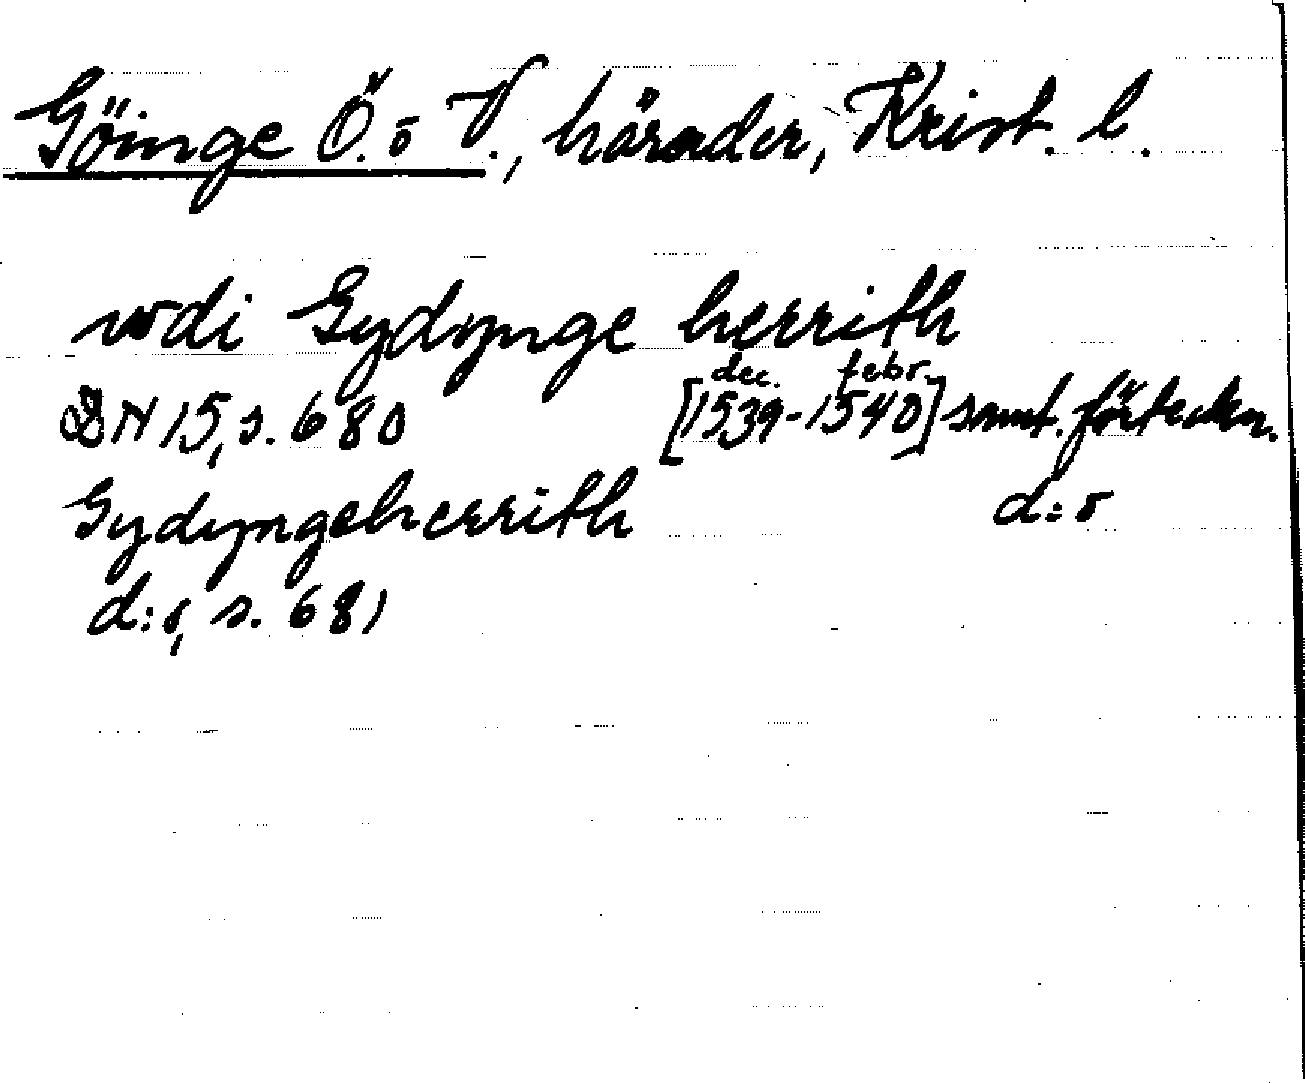 Göinge Ö. o V., härader, Krist. l.
wdi Gydynge herrith
dec. febr.
DN 15, s. 680 [1539-1540] samt. förteckn.
Gydyngeherrith d:o
d:o, s. 681